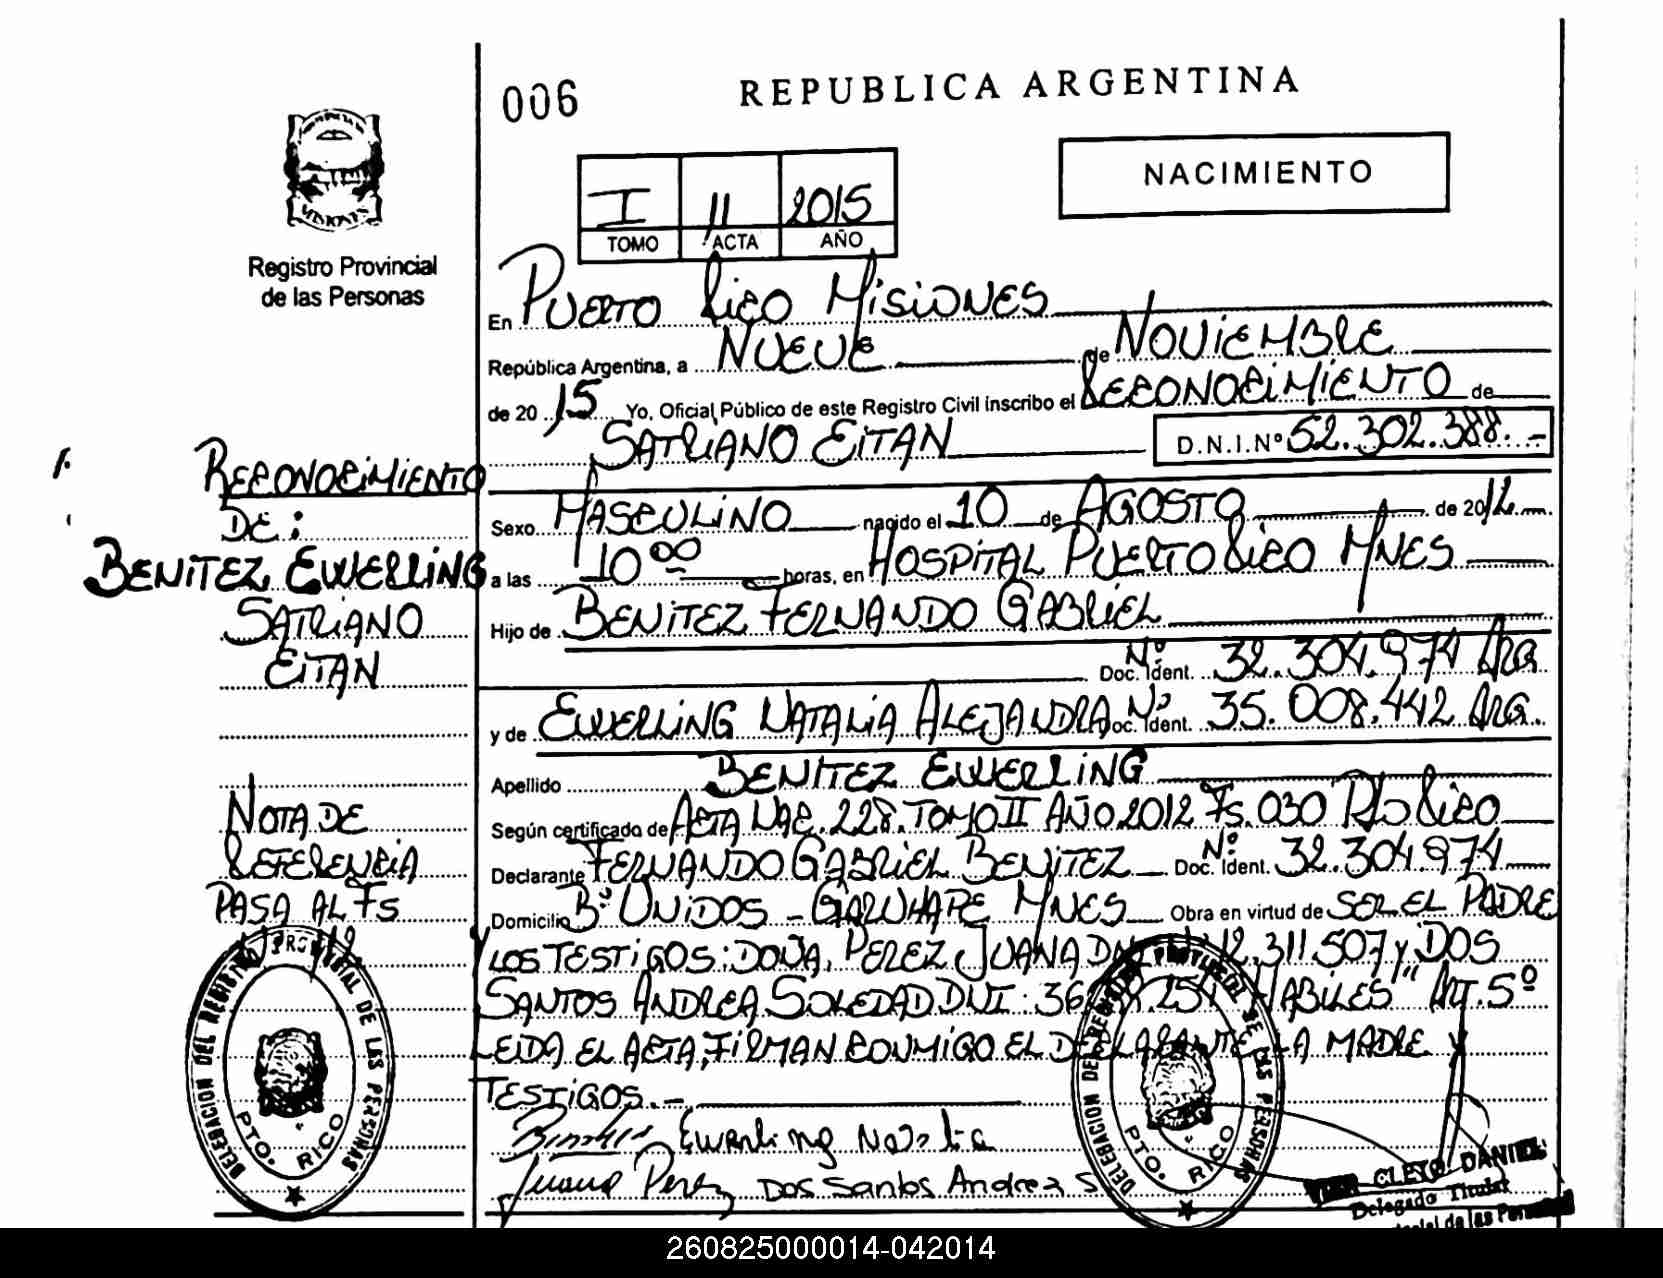 006
REPUBLICA ARGENTINA
NACIMIENTO
I 11 2015
TOMO ACTA AÑO
MISIONES
Registro Provincial
de las Personas
En PUERTO RICO MISIONES
República Argentina, a NUEVE de NOVIEMBRE
de 2015 Yo, Oficial Público de este Registro Civil inscribo el RECONOCIMIENTO de
SATRIANO EITAN D.N.I.Nº 52.302.388.-
Sexo MASCULINO nacido el 10 de AGOSTO de 2012
a las 10 00 horas, en HOSPITAL PUERTO RICO MNES
Hijo de BENITEZ FERNANDO GABRIEL
Doc. Ident. Nº 32.304.974 ARG
y de EWERLING NATALIA ALEJANDRA Doc. Ident. Nº 35.008.442 ARG.
Apellido BENITEZ EWERLING
Según certificado de ACTA NAC. 228. TOMO II AÑO 2012 Fs. 030 Pto RICO
Declarante FERNANDO GABRIEL BENITEZ Doc. Ident. Nº 32.304.974
Domicilio Bº UNIDOS - GARUHAPE MNES Obra en virtud de SER EL PADRE
LOS TESTIGOS: DOÑA, PEREZ JUANA 12.311.507 y DOS
SANTOS ANDREA SOLEDAD DNI: 36 HABILES" ART. 5º
LEIDA EL ACTA, FIRMAN CONMIGO EL DECLARANTE LA MADRE Y
TESTIGOS.-
Ewerling Natalia
Juana Perez Dos Santos Andrea S
RECONOCIMIENTO
DE:
BENITEZ EWERLING
SATRIANO
EITAN
NOTA DE
REFERENCIA
PASA AL Fs
DELEGACION DEL REGISTRO PROVINCIAL DE LAS PERSONAS
PTO. RICO
DELEGACION DEL REGISTRO PROVINCIAL DE LAS PERSONAS
PTO. RICO
CLETO DANIEL
Delegado Titular
de las
260825000014-042014